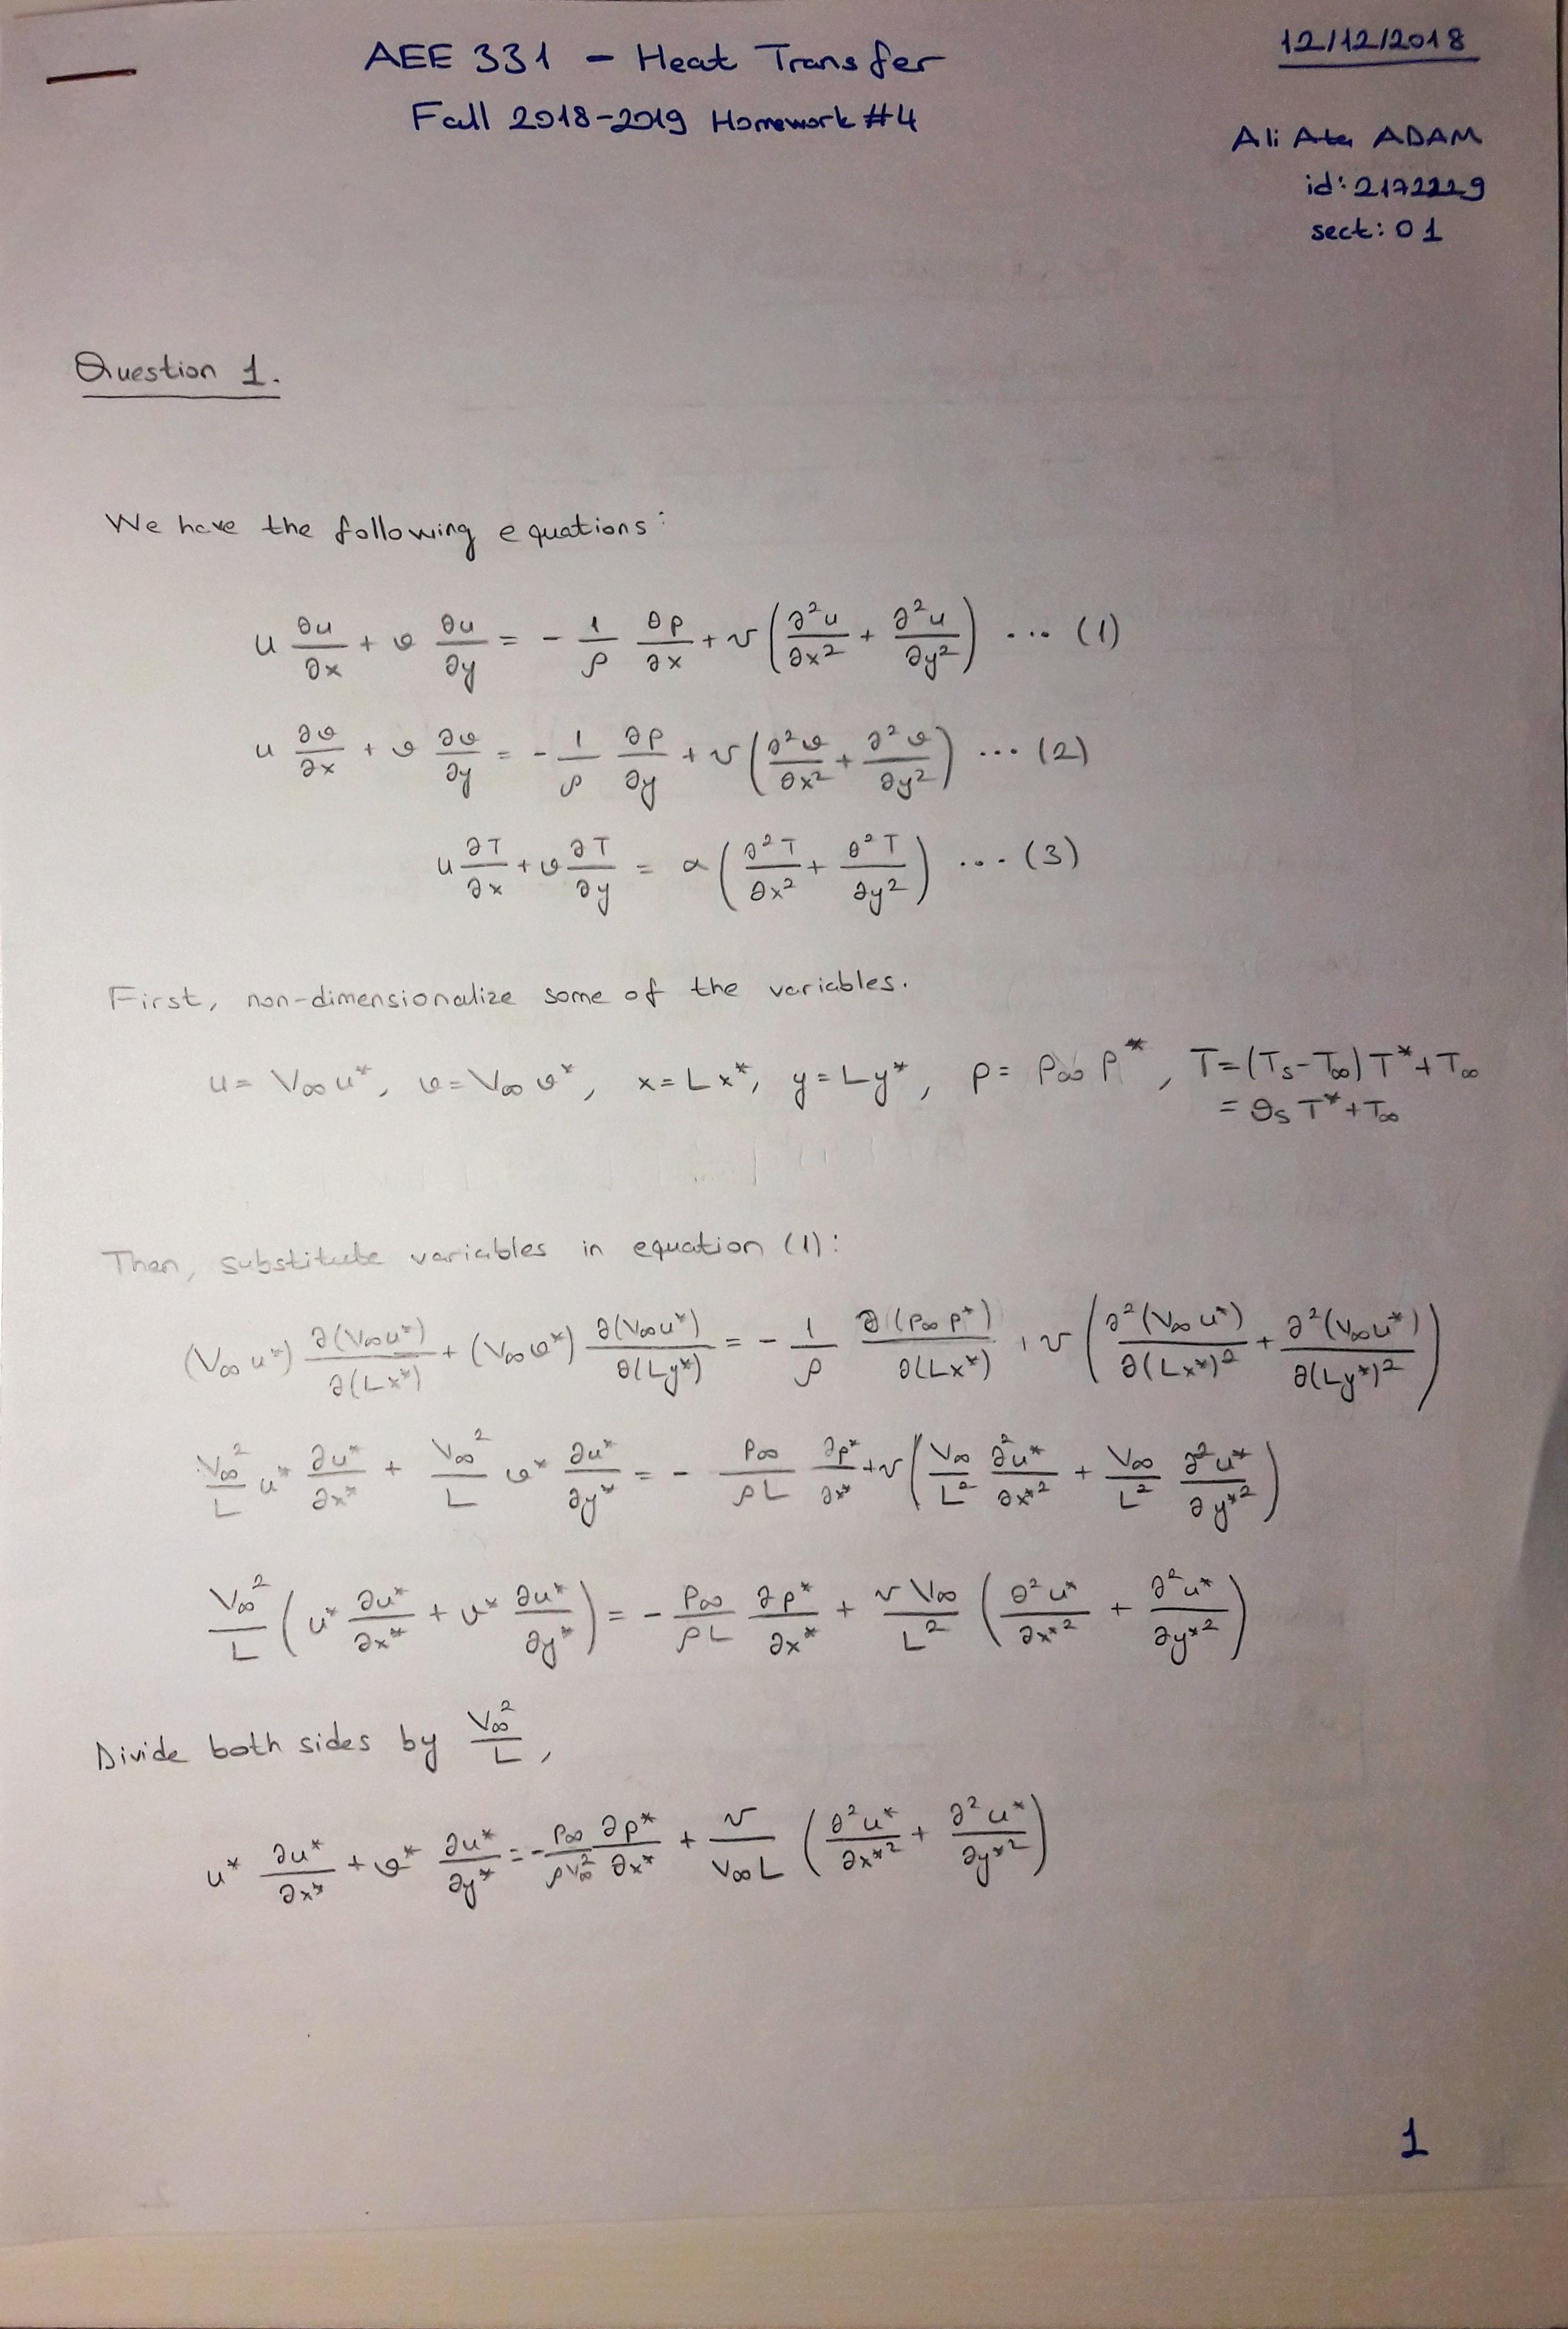 AEE 331 - Heat Transfer
Fall 2018-2019 Homework #4
12/12/2018
Ali Ata ADAM
id: 2172229
sect: 01
Question 1.
We have the following equations:
u ∂u/∂x + v ∂u/∂y = - 1/ρ ∂p/∂x + ν (∂²u/∂x² + ∂²u/∂y²) ... (1)
u ∂v/∂x + v ∂v/∂y = - 1/ρ ∂p/∂y + ν (∂²v/∂x² + ∂²v/∂y²) ... (2)
u ∂T/∂x + v ∂T/∂y = α (∂²T/∂x² + ∂²T/∂y²) ... (3)
First, non-dimensionalize some of the variables.
u = V∞ u*, v = V∞ v*, x = L x*, y = L y*, p = p∞ p*, T = (Ts - T∞) T* + T∞
= θs T* + T∞
Then, substitute variables in equation (1):
(V∞ u*) ∂(V∞ u*)/∂(L x*) + (V∞ v*) ∂(V∞ u*)/∂(L y*) = - 1/ρ ∂(p∞ p*)/∂(L x*) + ν (∂²(V∞ u*)/∂(L x*)² + ∂²(V∞ u*)/∂(L y*)²)
V∞²/L u* ∂u*/∂x* + V∞²/L v* ∂u*/∂y* = - p∞/ρL ∂p*/∂x* + ν (V∞/L² ∂²u*/∂x*² + V∞/L² ∂²u*/∂y*²)
V∞²/L (u* ∂u*/∂x* + v* ∂u*/∂y*) = - p∞/ρL ∂p*/∂x* + ν V∞/L² (∂²u*/∂x*² + ∂²u*/∂y*²)
Divide both sides by V∞²/L,
u* ∂u*/∂x* + v* ∂u*/∂y* = - p∞/ρV∞² ∂p*/∂x* + ν/V∞L (∂²u*/∂x*² + ∂²u*/∂y*²)
1